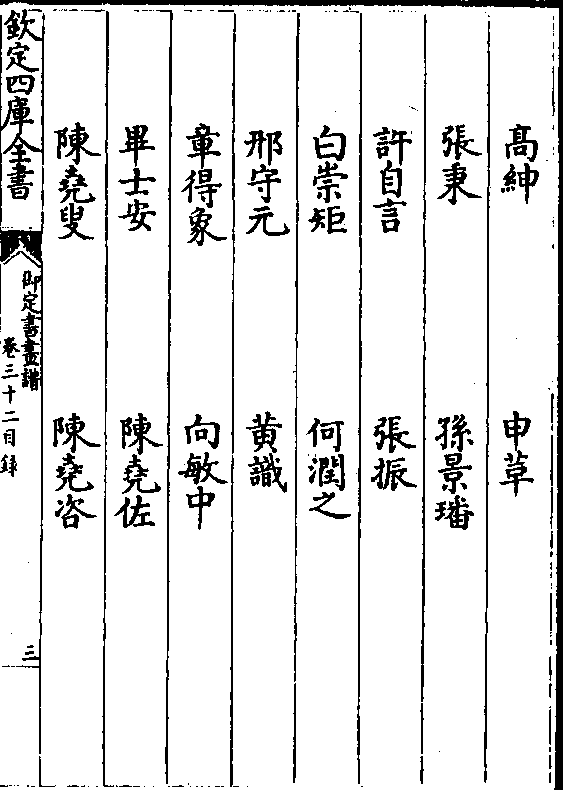 高紳　申革
張秉　孫景璠
許自言　張振
白崇矩　何潤之
邢守元　黄識
章得象　向敏中
畢士安　陳堯佐
陳堯叟　陳堯咨
欽定四庫全書　御定書畫譜　卷三十二目録　三